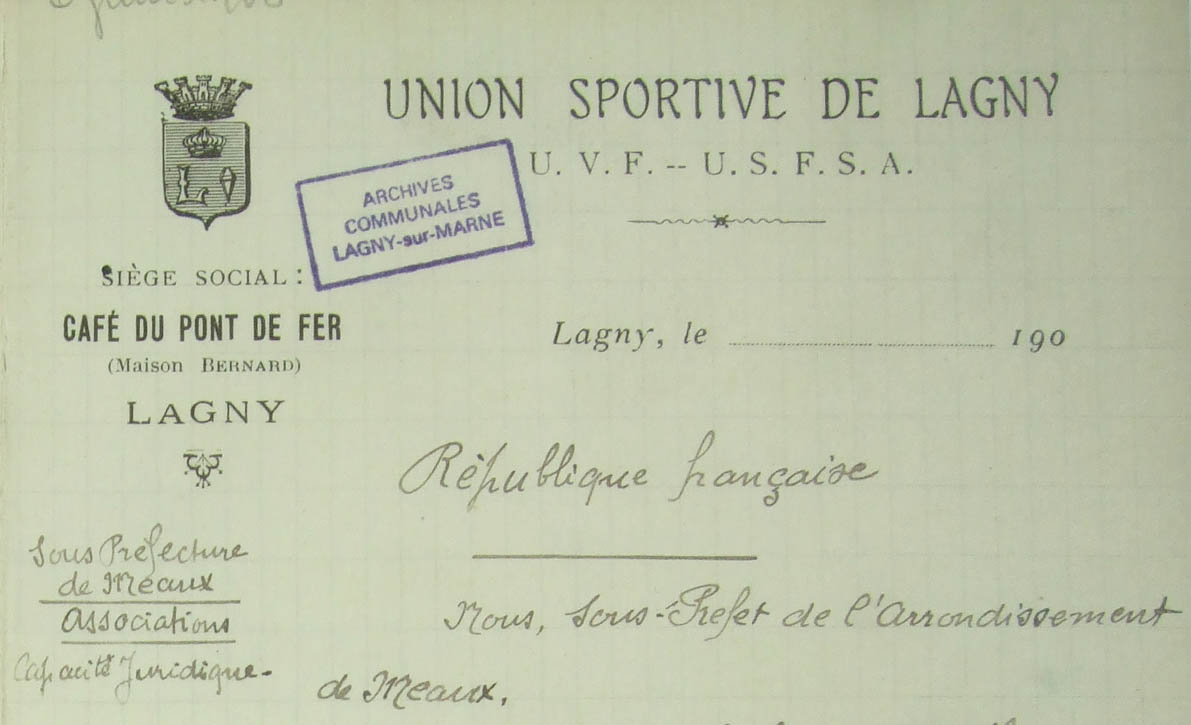 UNION SPORTIVE DE LAGNY
U. V. F. -- U. S. F. S. A.
L
ARCHIVES
COMMUNALES
LAGNY-sur-MARNE
SIÈGE SOCIAL :
CAFÉ DU PONT DE FER
(Maison BERNARD)
LAGNY
Lagny, le 190
République française
Sous Préfecture
de Meaux
Associations
Capacité Juridique-
Nous, Sous-Préfet de l'Arrondissement
de Meaux,